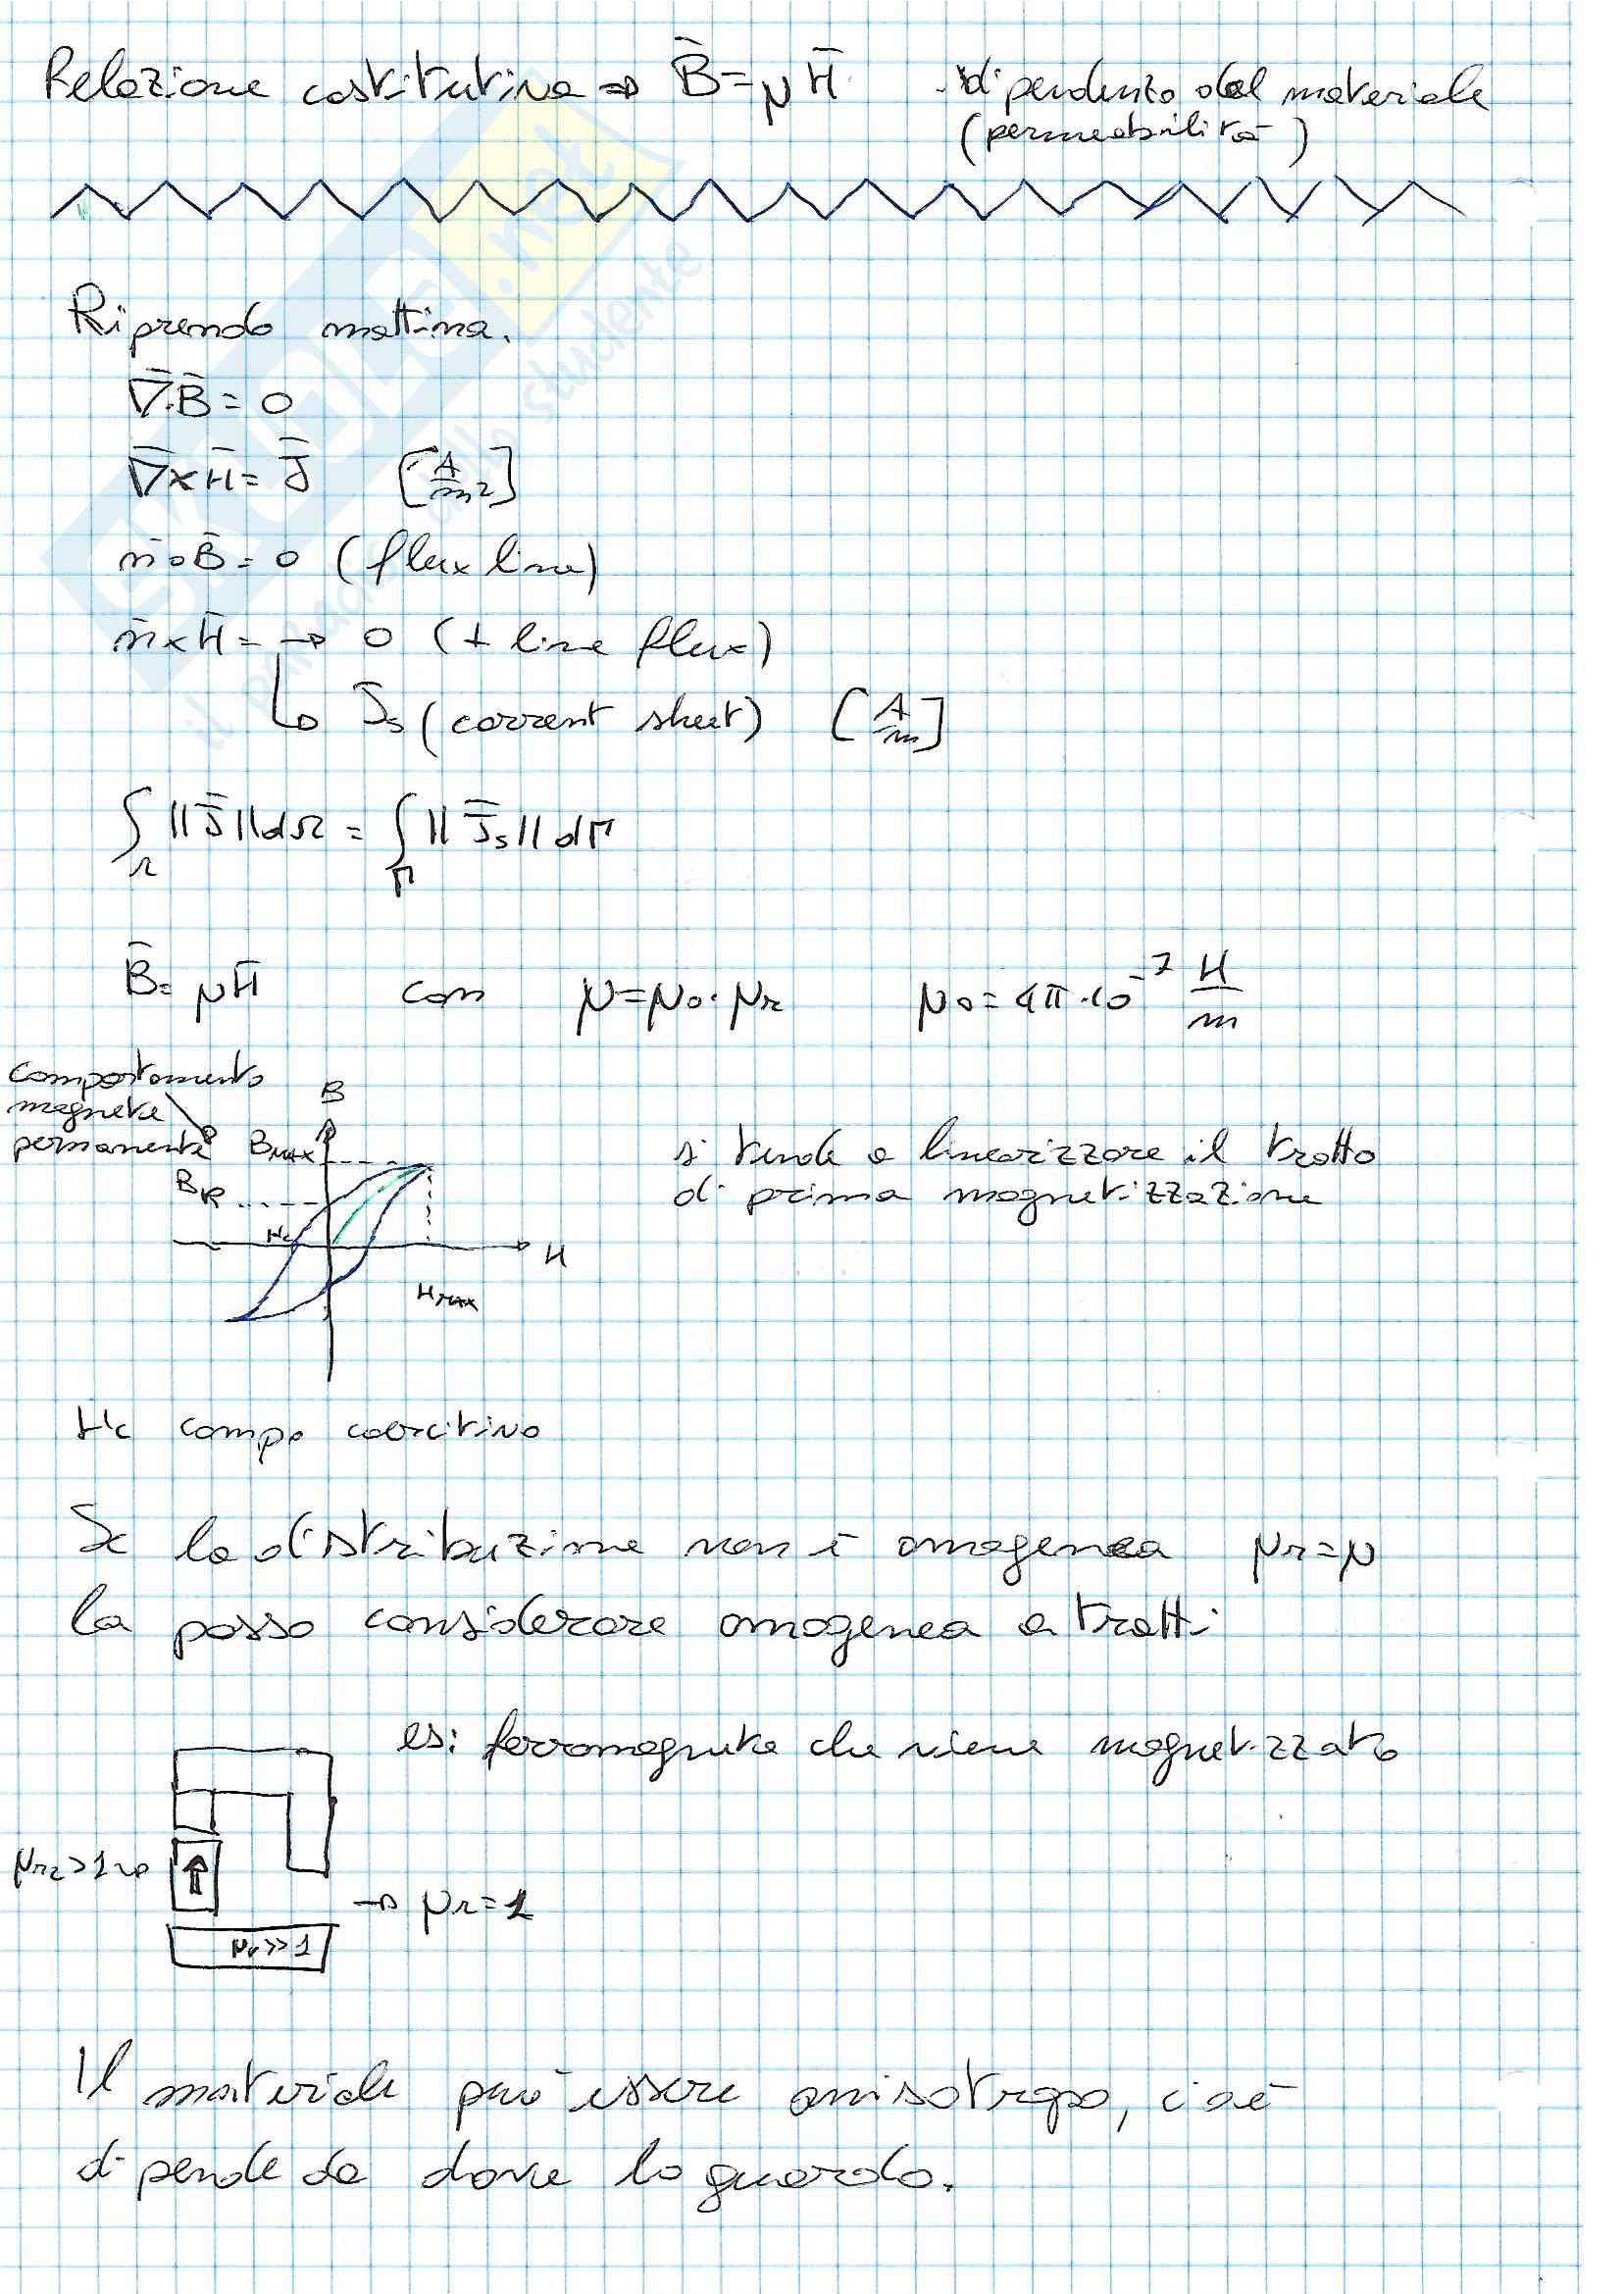 Relazione costitutiva ⇒ B̄=μH̄ dipendente dal materiale
(permeabilità)
Riprendo mattina.
∇̄·B̄=0
∇̄×H̄=J̄ [A/m²]
n̄∘B̄=0 (flux line)
n̄×H̄= → 0 (⊥ line flux)
↳ J̄s (corrent sheet) [A/m]
∫Ω ||J̄||dΩ = ∫Γ ||J̄s||dΓ
B̄=μH̄ con μ=μ0·μr μ0=4π·10⁻⁷ H/m
comportamento
magnete
permanente
B
BMAX
BR
Hc
H
HMAX
si tende a linearizzare il tratto
di prima magnetizzazione
Hc campo coercitivo
Se la distribuzione non è omogenea μr=μ
la posso considerare omogenea a tratti
es: ferromagnete che viene magnetizzato
μr2>1
→ μr=1
μr>>1
Il materiale può essere anisotropo, cioè
dipende da dove lo guardo.
SKUOLA.net
il paradiso dello studente